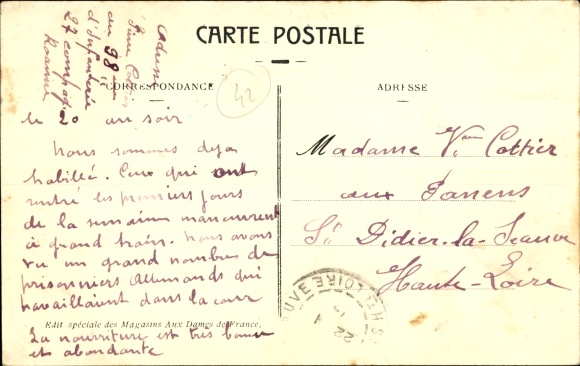 CARTE POSTALE
CORRESPONDANCE
ADRESSE
adresse
Pierre Cottier
au 98
d'Infanterie
27 compag
Roanne
42
le 20 au soir
Nous sommes deja
habillé. Ceux qui ont
rentré les premiers jours
de la semaine manœuvrent
à grand train. Nous avons
vu un grand nombre de
prisonniers Allemands qui
travaillaient dans la cour
Edit. spéciale des Magasins Aux Dames de France.
La nourriture est très bonne
et abondante
Madame Vve Cottier
aux
St Didier-la-Seauve
Haute-Loire
LOIRE
22